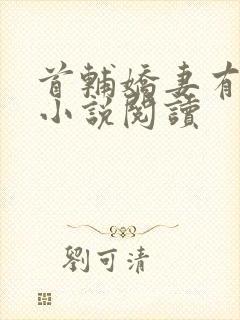 首輔嬌妻有
小說閱讀
劉可清